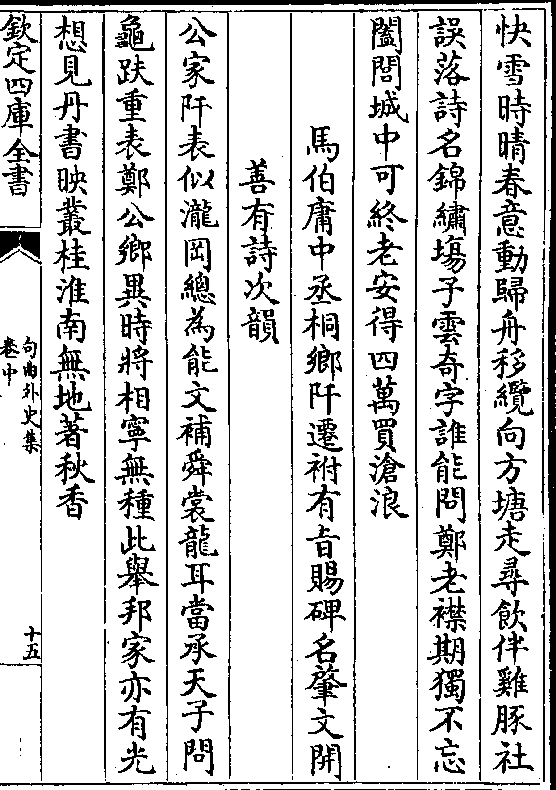 快雪時晴春意動歸舟移纜向方塘走尋飲伴雞豚社
誤落詩名錦繡塲子雲奇字誰能問鄭老襟期獨不忘
闔閭城中可終老安得四萬買滄浪
馬伯庸中丞桐鄉阡遷祔有㫖賜碑名肇文開
善有詩次韻
公家阡表似瀧岡總為能文補舜裳龍耳當承天子問
龜趺重表鄭公鄉異時將相寧無種此舉邦家亦有光
想見丹書映叢桂淮南無地著秋香
欽定四庫全書
句曲外史集
卷中
十五